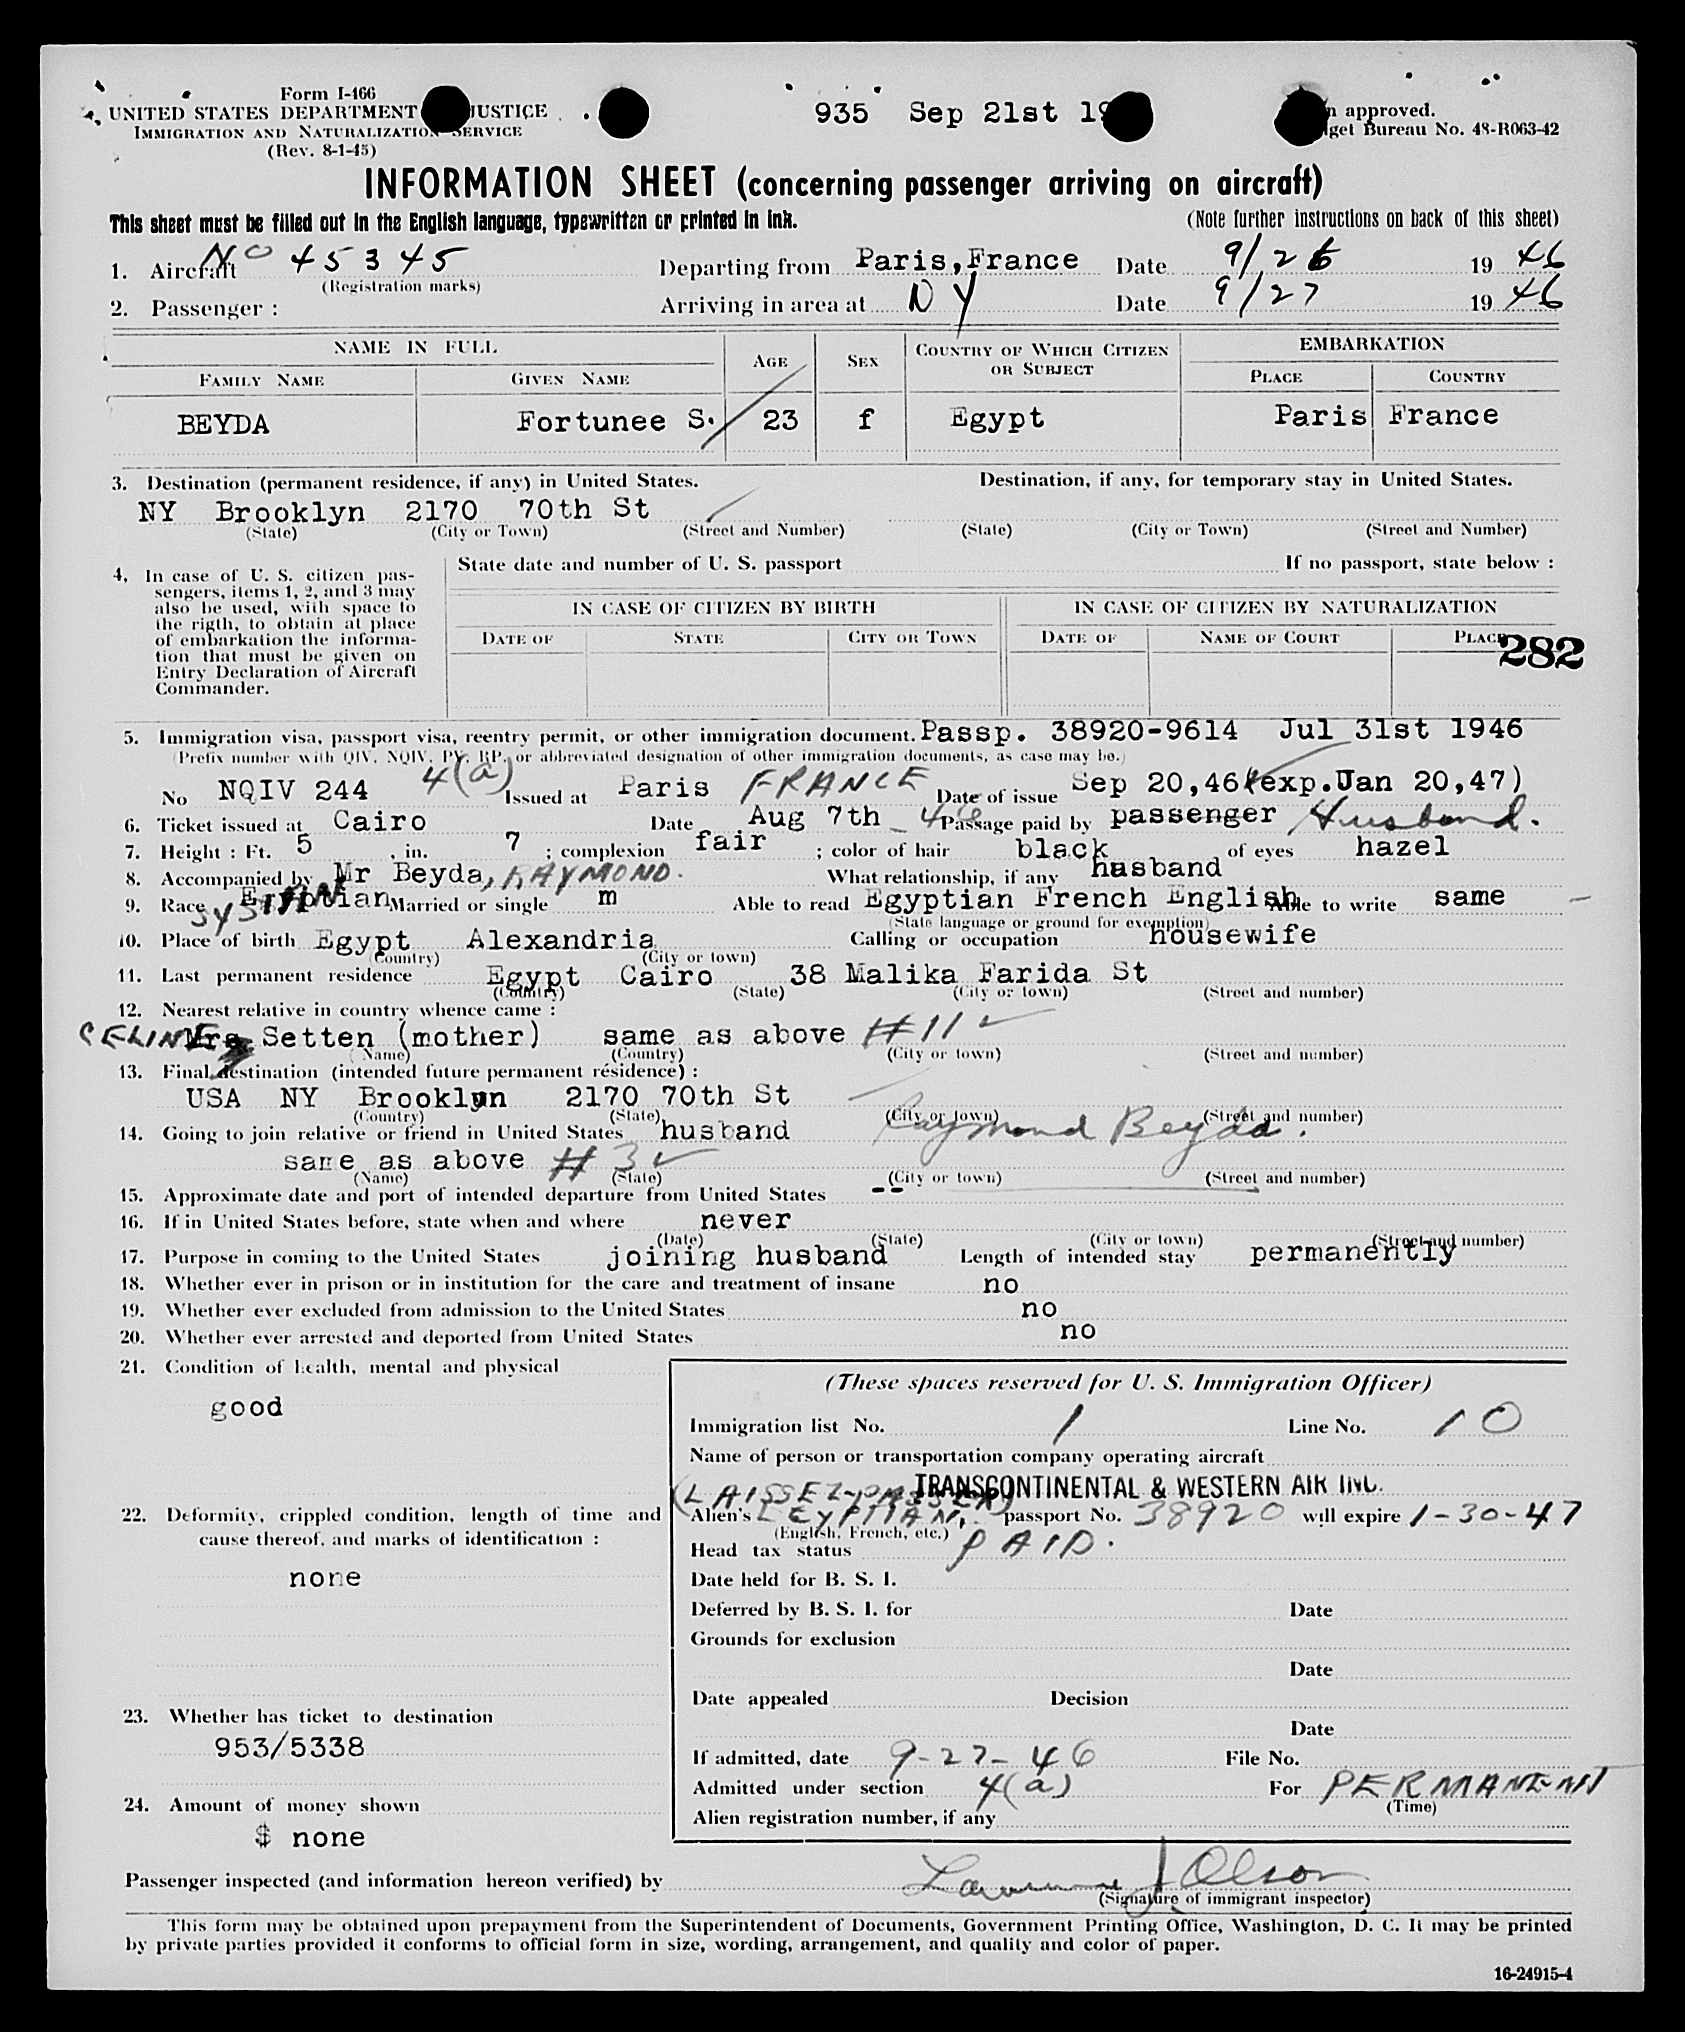 Form I-466
UNITED STATES DEPARTMENT JUSTICE
IMMIGRATION AND NATURALIZATION SERVICE
(Rev. 8-1-45)
935 Sep 21st 19
approved.
Bureau No. 43-R063-42
INFORMATION SHEET (concerning passenger arriving on aircraft)
This sheet must be filled out in the English language, typewritten or printed in ink.
(Note further instructions on back of this sheet)
1. Aircraft NO 45345 Departing from Paris,France Date 9/26 19 46
(Registration marks)
2. Passenger : Arriving in area at NY Date 9/27 19 46
NAME IN FULL AGE SEX COUNTRY OF WHICH CITIZEN OR SUBJECT EMBARKATION
FAMILY NAME GIVEN NAME PLACE COUNTRY
BEYDA Fortunee S. 23 f Egypt Paris France
3. Destination (permanent residence, if any) in United States. Destination, if any, for temporary stay in United States.
NY Brooklyn 2170 70th St
(State) (City or Town) (Street and Number) (State) (City or Town) (Street and Number)
4. In case of U. S. citizen pas-
sengers, items 1, 2, and 3 may
also be used, with space to
the rigth, to obtain at place
of embarkation the informa-
tion that must be given on
Entry Declaration of Aircraft
Commander.
State date and number of U. S. passport If no passport, state below :
IN CASE OF CITIZEN BY BIRTH IN CASE OF CITIZEN BY NATURALIZATION
DATE OF STATE CITY OR TOWN DATE OF NAME OF COURT PLACE
282
5. Immigration visa, passport visa, reentry permit, or other immigration document. Passp. 38920-9614 Jul 31st 1946
(Prefix number with QIV, NQIV, PV, RP, or abbreviated designation of other immigration documents, as case may be.)
No NQIV 244 4(a) Issued at Paris FRANCE Date of issue Sep 20,46(exp.Jan 20,47)
6. Ticket issued at Cairo Date Aug 7th - 46 Passage paid by passenger Husband.
7. Height : Ft. 5 in. 7 ; complexion fair ; color of hair black of eyes hazel
8. Accompanied by Mr Beyda, RAYMOND. What relationship, if any husband
9. Race Egyptian SYRIAN Married or single m Able to read Egyptian French English Able to write same
(State language or ground for exemption)
10. Place of birth Egypt Alexandria Calling or occupation housewife
(Country) (City or town)
11. Last permanent residence Egypt Cairo 38 Malika Farida St
(Country) (State) (City or town) (Street and number)
12. Nearest relative in country whence came :
CELINE Mrs Setten (mother) same as above #11
(Name) (Country) (City or town) (Street and number)
13. Final destination (intended future permanent résidence) :
USA NY Brooklyn 2170 70th St
(Country) (State) (City or town) (Street and number)
14. Going to join relative or friend in United States husband Raymond Beyda.
same as above #3
(Name) (State) (City or town) (Street and number)
15. Approximate date and port of intended departure from United States --
16. If in United States before, state when and where never
(Date) (State) (City or town) (Street and number)
17. Purpose in coming to the United States joining husband Length of intended stay permanently
18. Whether ever in prison or in institution for the care and treatment of insane no
19. Whether ever excluded from admission to the United States no
20. Whether ever arrested and deported from United States no
21. Condition of health, mental and physical
good
22. Deformity, crippled condition, length of time and
cause thereof, and marks of identification :
none
23. Whether has ticket to destination
953/5338
24. Amount of money shown
$ none
(These spaces reserved for U. S. Immigration Officer)
Immigration list No. 1 Line No. 10
Name of person or transportation company operating aircraft
TRANSCONTINENTAL & WESTERN AIR INC.
(LAISSEZ-PASSER)
Alien's EGYPTIAN. passport No. 38920 will expire 1-30-47
(English, French, etc.)
Head tax status PAID.
Date held for B. S. I.
Deferred by B. S. I. for Date
Grounds for exclusion
Date
Date appealed Decision
Date
If admitted, date 9-27-46 File No.
Admitted under section 4(a) For PERMANENT
(Time)
Alien registration number, if any
Passenger inspected (and information hereon verified) by Lawrence J Olson
(Signature of immigrant inspector)
This form may be obtained upon prepayment from the Superintendent of Documents, Government Printing Office, Washington, D. C. It may be printed
by private parties provided it conforms to official form in size, wording, arrangement, and quality and color of paper.
16-24915-4